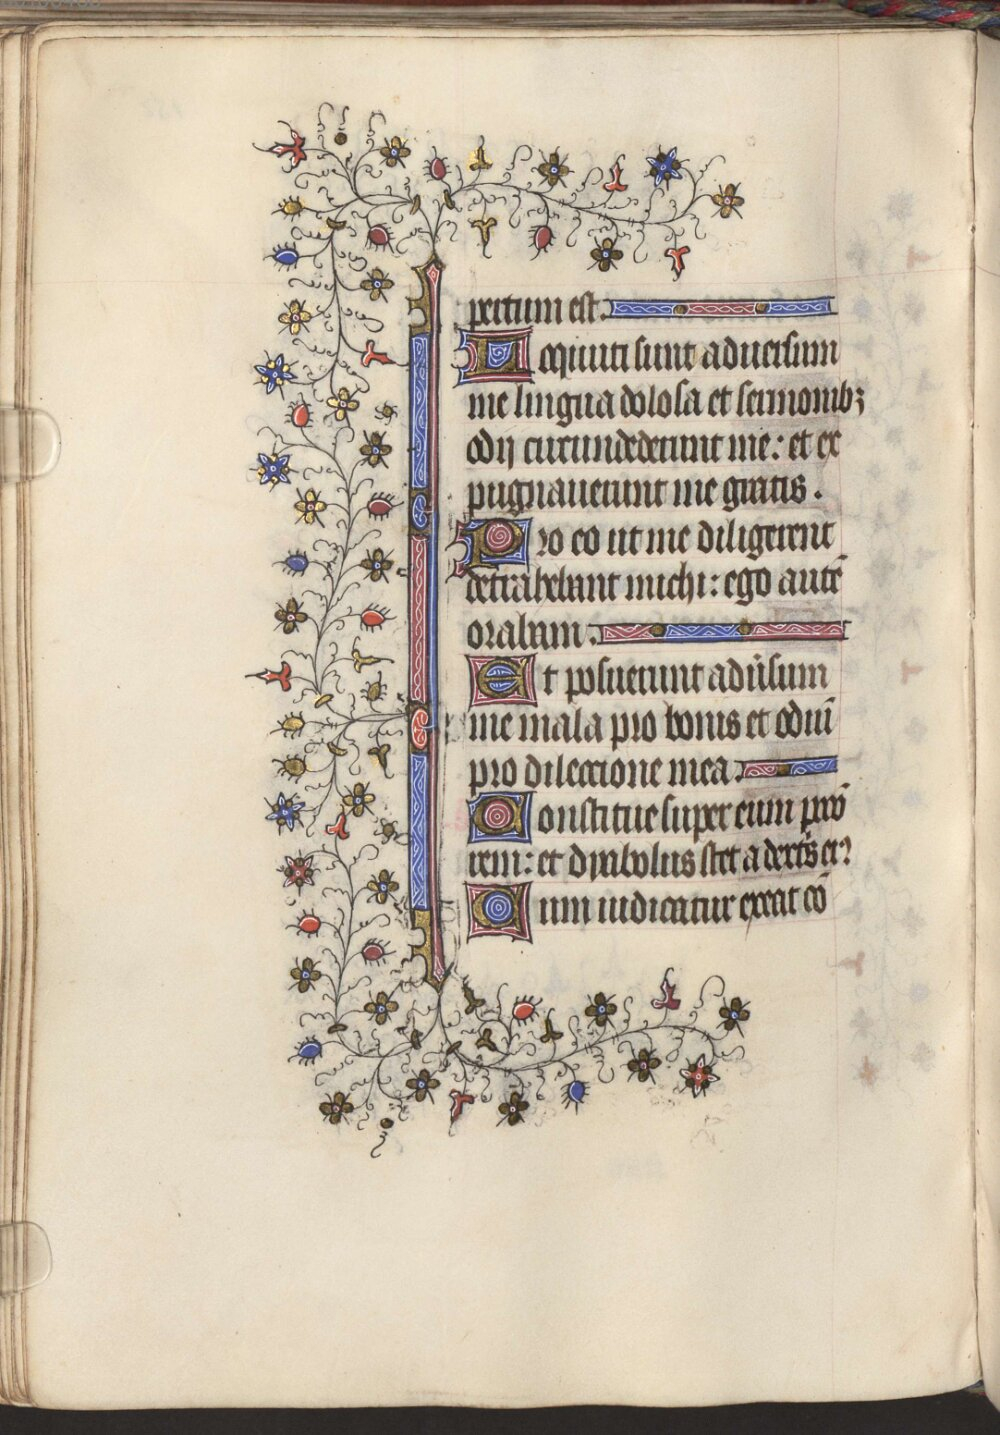 pertum est.
Locuti sunt aduersum
me lingua dolosa et sermonib;
odij circundederunt me: et ex
pugnauerunt me gratis.
Pro eo ut me diligerent
detrahebant michi: ego autē
orabam.
Et posuerunt adu̅sum
me mala pro bonis et odiū
pro dileccione mea.
Constitue super eum pcc̄o
rem: et dyabolus stet a dext̄s eiꝰ
Cum iudicatur exeat cō